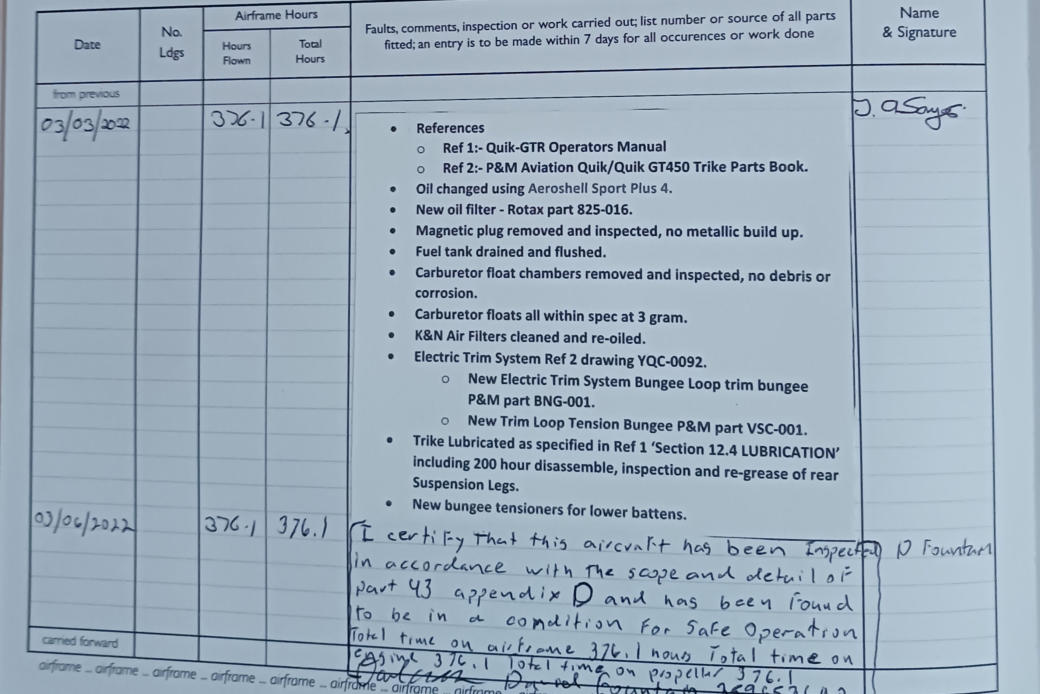 Date
No. Ldgs
Airframe Hours
Hours Flown
Total Hours
Faults, comments, inspection or work carried out; list number or source of all parts
fitted; an entry is to be made within 7 days for all occurences or work done
Name
& Signature
from previous
03/03/2022 376.1 376.1
• References
○ Ref 1:- Quik-GTR Operators Manual
○ Ref 2:- P&M Aviation Quik/Quik GT450 Trike Parts Book.
• Oil changed using Aeroshell Sport Plus 4.
• New oil filter - Rotax part 825-016.
• Magnetic plug removed and inspected, no metallic build up.
• Fuel tank drained and flushed.
• Carburetor float chambers removed and inspected, no debris or
corrosion.
• Carburetor floats all within spec at 3 gram.
• K&N Air Filters cleaned and re-oiled.
• Electric Trim System Ref 2 drawing YQC-0092.
○ New Electric Trim System Bungee Loop trim bungee
P&M part BNG-001.
○ New Trim Loop Tension Bungee P&M part VSC-001.
• Trike Lubricated as specified in Ref 1 ‘Section 12.4 LUBRICATION’
including 200 hour disassemble, inspection and re-grease of rear
Suspension Legs.
• New bungee tensioners for lower battens.
03/06/2022 376.1 376.1
I certify that this aircraft has been Inspected D Fountain
in accordance with the scope and detail of
part 43 appendix D and has been found
to be in a condition for safe operation
Total time on airframe 376.1 hours Total time on
engine 376.1 Total time on propeller 376.1
carried forward
airframe ... airframe ... airframe ... airframe ... airframe ... airframe ... airframe ... airframe ... airframe